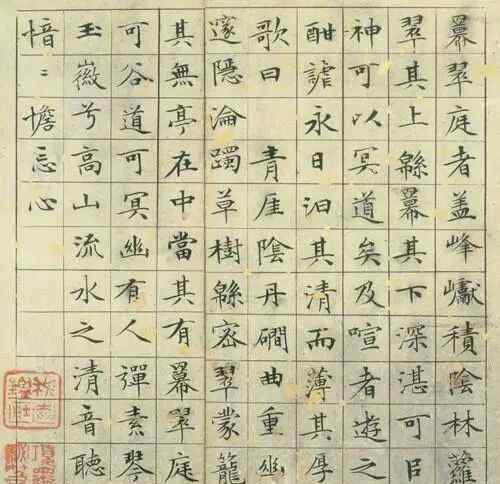 冪翠庭者盖峰巘積陰林蘿
翠其上緜冪其下深湛可㠯
神可以冥道矣及喧者遊之
酣謔永日汩其清而薄其厚
歌曰 青厓陰丹磵曲重幽
邃隱淪躅草樹緜密翠蒙籠
其無亭在中當其有冪翠庭
可谷道可冥幽有人彈素琴
玉徽兮高山流水之清音聽
愔〻憺忘心